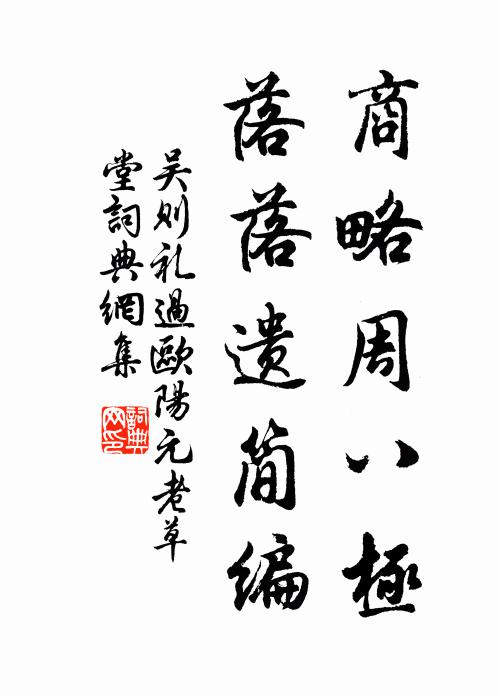 商略周八極
落落遗简编
吴则礼過歐陽元老草
堂詞典網集
詞典网印